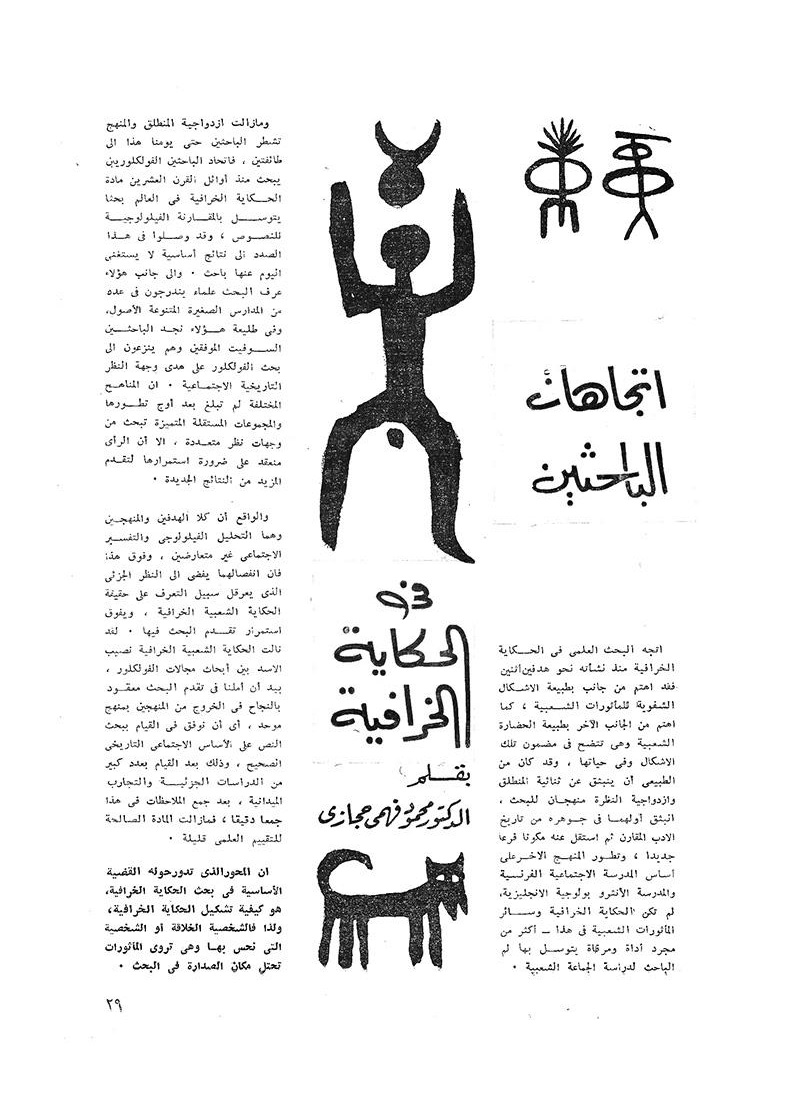 اتجاهات
الباحثين
في
الحكاية
الخرافية
بقلم
الدكتور محمود فهمى حجازى
اتجه البحث العلمى فى الحكاية
الخرافية منذ نشأته نحو هدفين اثنين
فقد اهتم من جانب بطبيعة الاشكال
الشفوية للمأثورات الشعبية ، كما
اهتم من الجانب الآخر بطبيعة الحضارة
الشعبية وهى تتضح فى مضمون تلك
الاشكال وفى حياتها ، وقد كان من
الطبيعى أن ينبثق عن ثنائية المنطلق
وازدواجية النظرة منهجان للبحث ،
انبثق أولهما فى جوهره من تاريخ
الادب المقارن ثم استقل عنه مكونا فرعا
جديدا ، وتطور المنهج الاخر على
أساس المدرسة الاجتماعية الفرنسية
والمدرسة الأنثرو بولوجية الانجليزية،
لم تكن الحكاية الخرافية وسائر
المأثورات الشعبية فى هذا ـ أكثر من
مجرد أداة ومرقاة يتوسل بها لم
الباحث لدراسة الجماعة الشعبية .
ومازالت ازدواجية المنطلق والمنهج
تشطر الباحثين حتى يومنا هذا الى
طائفتين ، فاتحاد الباحثين الفولكلوريين
يبحث منذ أوائل القرن العشرين مادة
الحكاية الخرافية فى العالم بحثا
يتوسل بالمقارنة الفيلولوجية
للنصوص ، وقد وصلوا فى هذا
الصدد الى نتائج أساسية لا يستغنى
اليوم عنها باحث . والى جانب هؤلاء
عرف البحث علماء يندرجون فى عدد
من المدارس الصغيرة المتنوعة الأصول،
وفى طليعة هؤلاء نجد الباحثين
السوفيت الموفقين وهم ينزعون الى
بحث الفولكلور على هدى وجهة النظر
التاريخية الاجتماعية . ان المناهج
المختلفة لم تبلغ بعد أوج تطورها
والمجموعات المستقلة المتميزة تبحث من
وجهات نظر متعددة ، الا أن الرأى
منعقد على ضرورة استمرارها لتقدم
المزيد من النتائج الجديدة .
والواقع أن كلا الهدفين والمنهجين
وهما التحليل الفيلولوجى والتفسير
الاجتماعى غير متعارضين ، وفوق هذا
فان انفصالهما يفضى الى النظر الجزئى
الذى يعرقل سبيل التعرف على حقيقة
الحكاية الشعبية الخرافية ، ويفوق
استمرار تقدم البحث فيها . لقد
نالت الحكاية الشعبية الخرافية نصيب
الاسد بين أبحاث مجالات الفولكلور ،
بيد أن أملنا فى تقدم البحث معقود
بالنجاح فى الخروج من المنهجين بمنهج
موحد ، أى أن نوفق فى القيام ببحث
النص على الأساس الاجتماعى التاريخى
الصحيح ، وذلك بعد القيام بعدد كبير
من الدراسات الجزئية والتجارب
الميدانية ، بعد جمع الملاحظات فى هذا
جمعا دقيقا ، فمازالت المادة الصالحة
للتقييم العلمى قليلة .
ان المحور الذى تدور حوله القضية
الأساسية فى بحث الحكاية الخرافية،
هو كيفية تشكيل الحكاية الخرافية،
ولذا فالشخصية الخلاقة أو الشخصية
التى نحس بها وهى تروى المأثورات
تحتل مكان الصدارة فى البحث .
٢٩